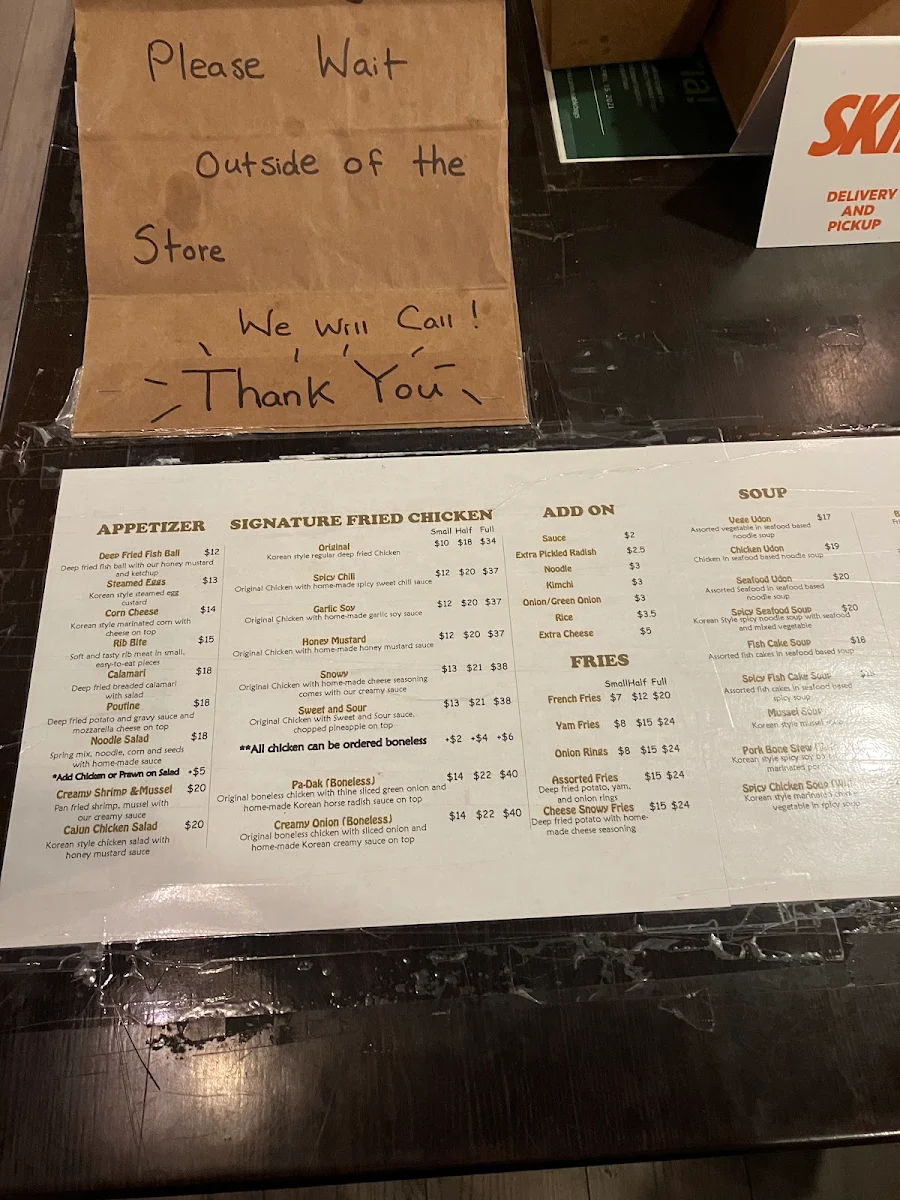 Please Wait
Outside of the
Store
We Will Call!
Thank You
SKI
DELIVERY
AND
PICKUP
APPETIZER
Deep Fried Fish Ball $12
Deep fried fish ball with our honey mustard
and ketchup
Steamed Eggs $13
Korean style steamed egg
custard
Corn Cheese $14
Korean style marinated corn with
cheese on top
Rib Bite $15
Soft and tasty rib meat in small,
easy-to-eat pieces
Calamari $18
Deep fried breaded calamari
with salad
Poutine $18
Deep fried potato and gravy sauce and
mozzarella cheese on top
Noodle Salad $18
Spring mix, noodle, corn and seeds
with home-made sauce
*Add Chicken or Prawn on Salad +$5
Creamy Shrimp & Mussel $20
Pan fried shrimp, mussel with
our creamy sauce
Cajun Chicken Salad $20
Korean style chicken salad with
honey mustard sauce
SIGNATURE FRIED CHICKEN
Small Half Full
Original $10 $18 $34
Korean style regular deep fried Chicken
Spicy Chili $12 $20 $37
Original Chicken with home-made spicy sweet chili sauce
Garlic Soy $12 $20 $37
Original Chicken with home-made garlic soy sauce
Honey Mustard $12 $20 $37
Original Chicken with home-made honey mustard sauce
Snowy $13 $21 $38
Original Chicken with home-made cheese seasoning
comes with our creamy sauce
Sweet and Sour $13 $21 $38
Original Chicken with Sweet and Sour sauce,
chopped pineapple on top
**All chicken can be ordered boneless +$2 +$4 +$6
Pa-Dak (Boneless) $14 $22 $40
Original boneless chicken with thine sliced green onion and
home-made Korean horse radish sauce on top
Creamy Onion (Boneless) $14 $22 $40
Original boneless chicken with sliced onion and
home-made Korean creamy sauce on top
ADD ON
Sauce $2
Extra Pickled Radish $2.5
Noodle $3
Kimchi $3
Onion/Green Onion $3
Rice $3.5
Extra Cheese $5
FRIES
Small Half Full
French Fries $7 $12 $20
Yam Fries $8 $15 $24
Onion Rings $8 $15 $24
Assorted Fries $15 $24
Deep fried potato, yam,
and onion rings
Cheese Snowy Fries $15 $24
Deep fried potato with home-
made cheese seasoning
SOUP
Vege Udon $17
Assorted vegetable in seafood based
noodle soup
Chicken Udon $19
Chicken in seafood based noodle soup
Seafood Udon $20
Assorted Seafood in seafood based
noodle soup
Spicy Seafood Soup $20
Korean Style spicy noodle soup with seafood
and mixed vegetable
Fish Cake Soup $18
Assorted fish cakes in seafood based soup
Spicy Fish Cake Soup
Assorted fish cakes in seafood based
spicy soup
Mussel Soup
Korean style mussel soup
Pork Bone Stew
Korean style spicy soy
marinated
Spicy Chicken Soup
Korean style marinated chicken
vegetable in spicy soup